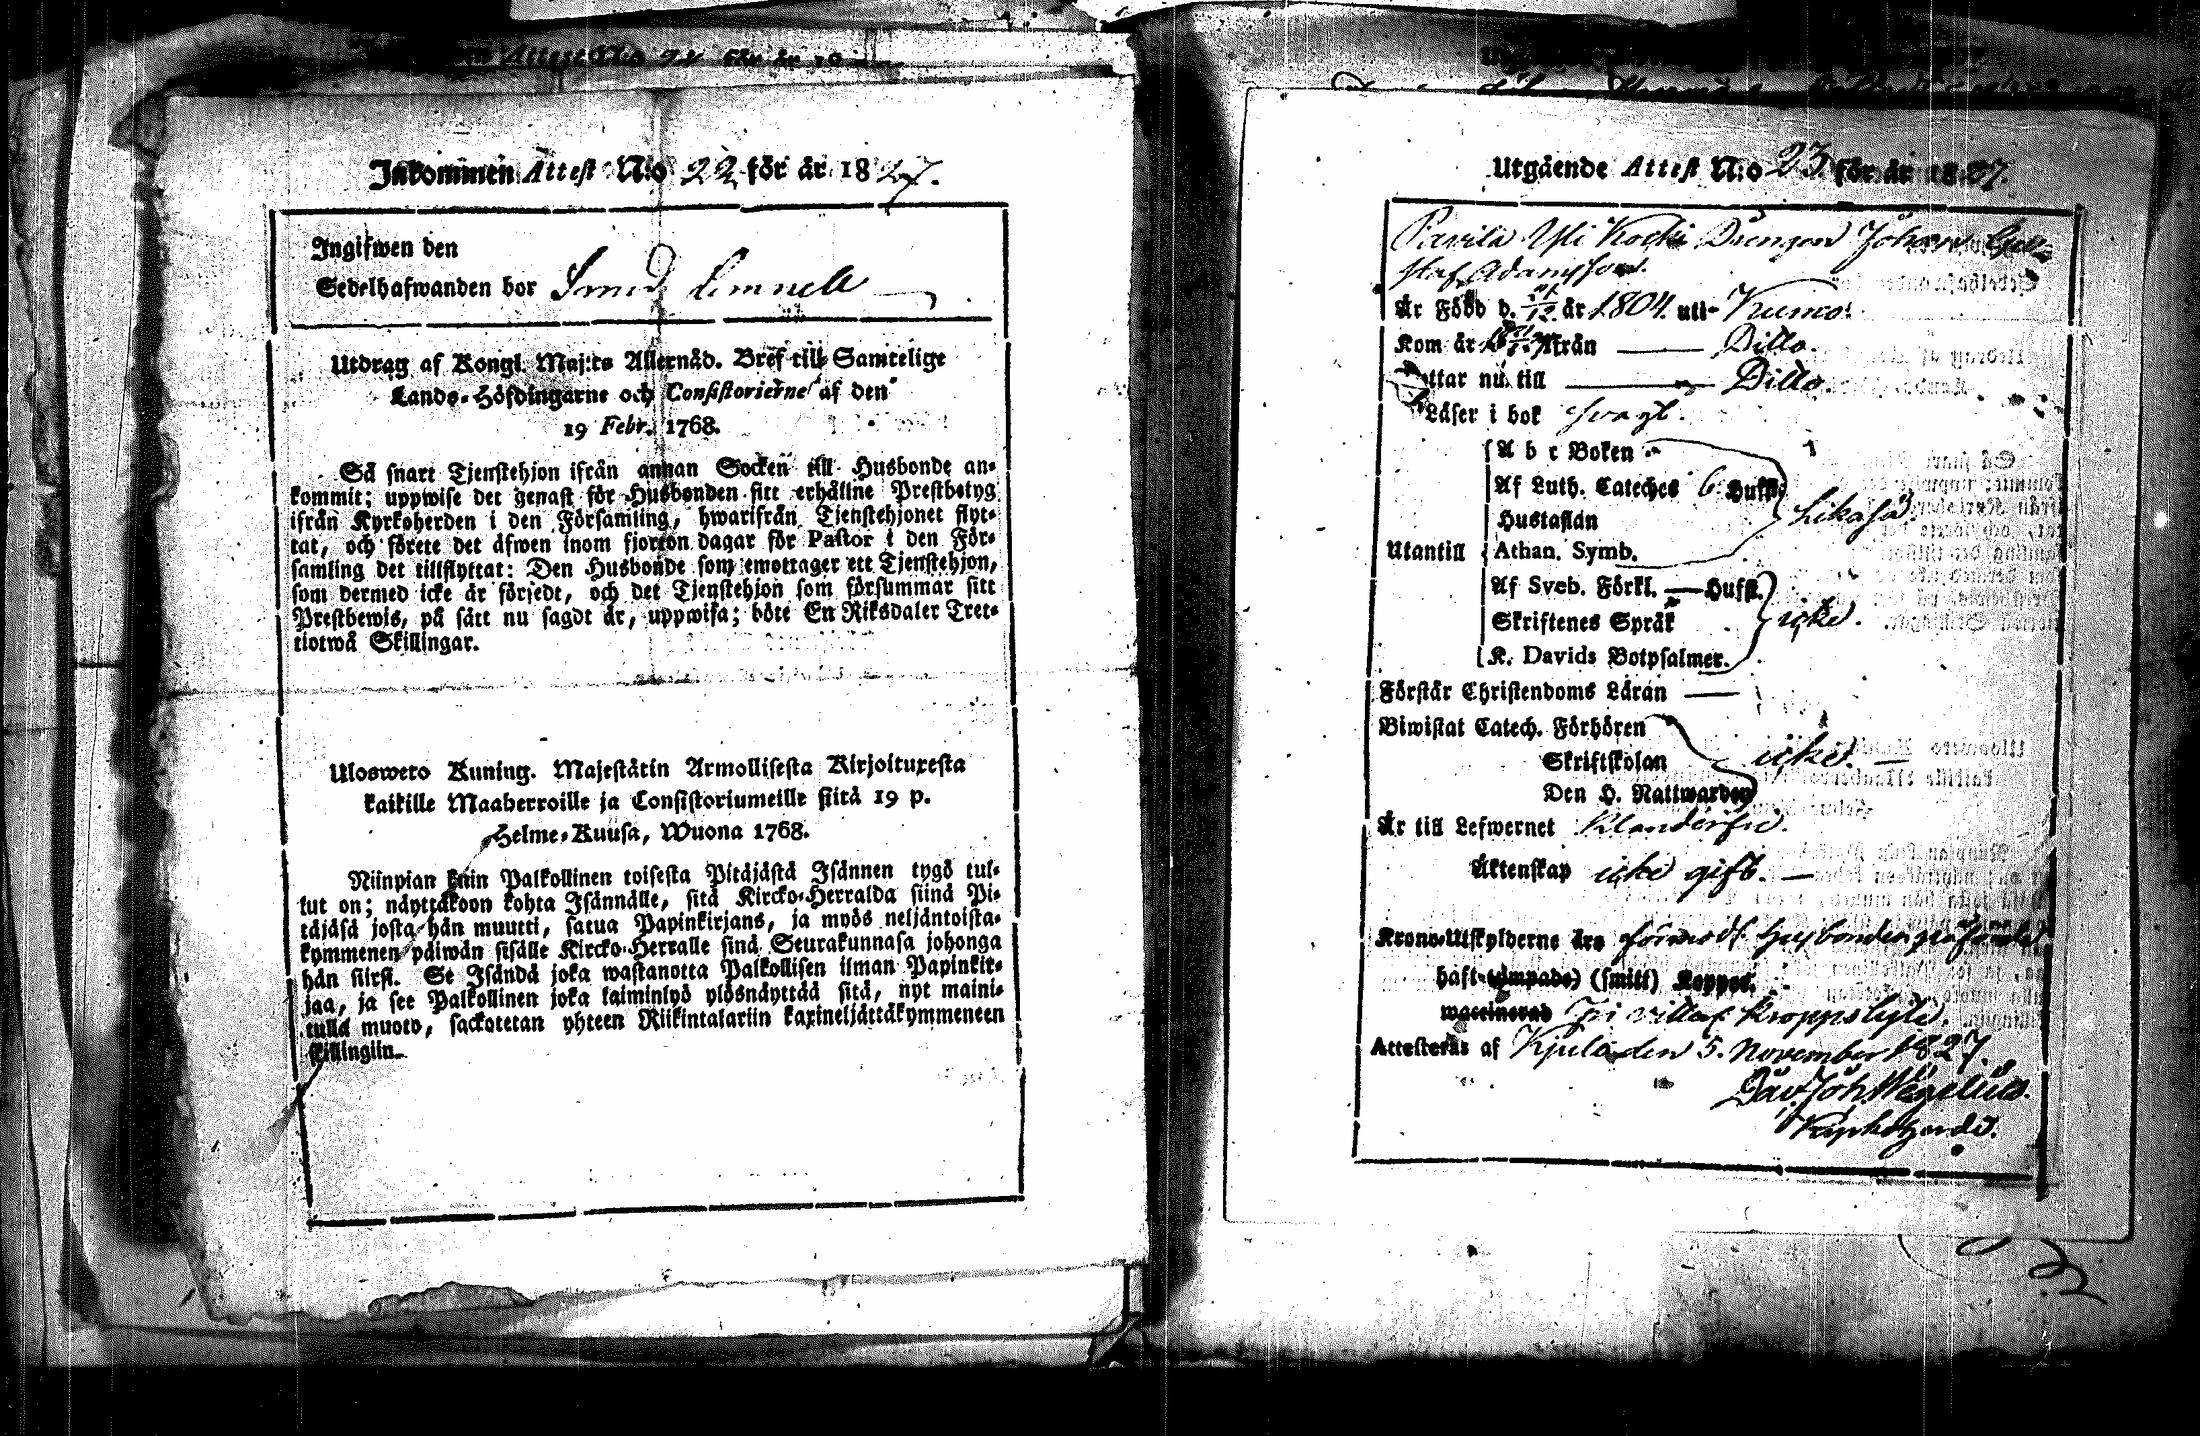 Inkommen Attest N:o 22 för år 1827.
Ingifwen den
Sedelhafwanden bor
Utdrag af Kongl. Maj:ts Allernåd. Bref till Samtelige
Lands-Höfdingarne och Consistorierne af den
19 Febr. 1768.
Så snart Tjenstehjon ifrån annan Socken till Husbonde an-
kommit; uppwise det genast för Husbonden sitt erhållne Prestbetyg
ifrån Kyrkoherden i den Församling, hwarifrån Tjenstehjonet flyt-
tat, och förete det äfwen inom fjorton dagar för Pastor i den För-
samling det tillflyttat: Den Husbonde som emottager ett Tjenstehjon,
som dermed icke är försedt, och det Tjenstehjon som försummar sitt
Prestbewis, på sätt nu sagdt är, uppwisa; böte En Riksdaler Tret-
tiotwå Skillingar.
Uloswero Kuning. Majestätin Armollisesta Kirjoituxesta
kaikille Maaherroille ja Consistoriumeille siitä 19 p.
Helme-Kuusa, Wuona 1768.
Niinpian kuin Palkollinen toisesta Pitäjästä Isännen tygö tul-
lut on; näyttäkoon kohta Isännälle, sitä Kircko-Herralda siinä Pi-
täjäsä josta hän muutti, saatua Papinkirjans, ja myös neljäntoista-
kymmenen päiwän sisälle Kircko-Herralle sinä Seurakunnasa johonga
hän siirsi. Se Isändä joka wastanotta Palkollisen ilman Papinkir-
jaa, ja see Palkollinen joka laiminlyö ylösnäyttää sitä, nyt maini-
tulla muoto, sackotetan yhteen Riikintalariin kaxineljättäkymmeneen
skillingiin.
Utgående Attest N:o 23 för år 1827.
Pavila Yli Kocki Drengen Johan Gu-
staf Adamsson.
Är Född d. år 1804. uti Kumo.
Kom år ifrån — Ditto.
Flyttar nu till — Ditto
Läser i bok svagt.
A b c Boken
Af Luth. Cateches 6 Hufst.
Hustaflan
Likaså.
Utantill Athan. Symb.
Af Sveb. Förkl. — Hufst.
Skriftenes Språk icke.
K. Davids Botpsalmer.
Förstår Christendoms Läran —
Biwistat Catech. Förhören
Skriftskolan icke. —
Den H. Nattwarden
Är till Lefwernet klanderfri.
Äktenskap icke gift. —
Krono-Utskylderne äro
haft (ympade) (smitt) Koppor.
waccinerad
Attesteras af Kjulo den 5. November 1827.
Dav. Joh. Wegelius.
Kyrkoherde.